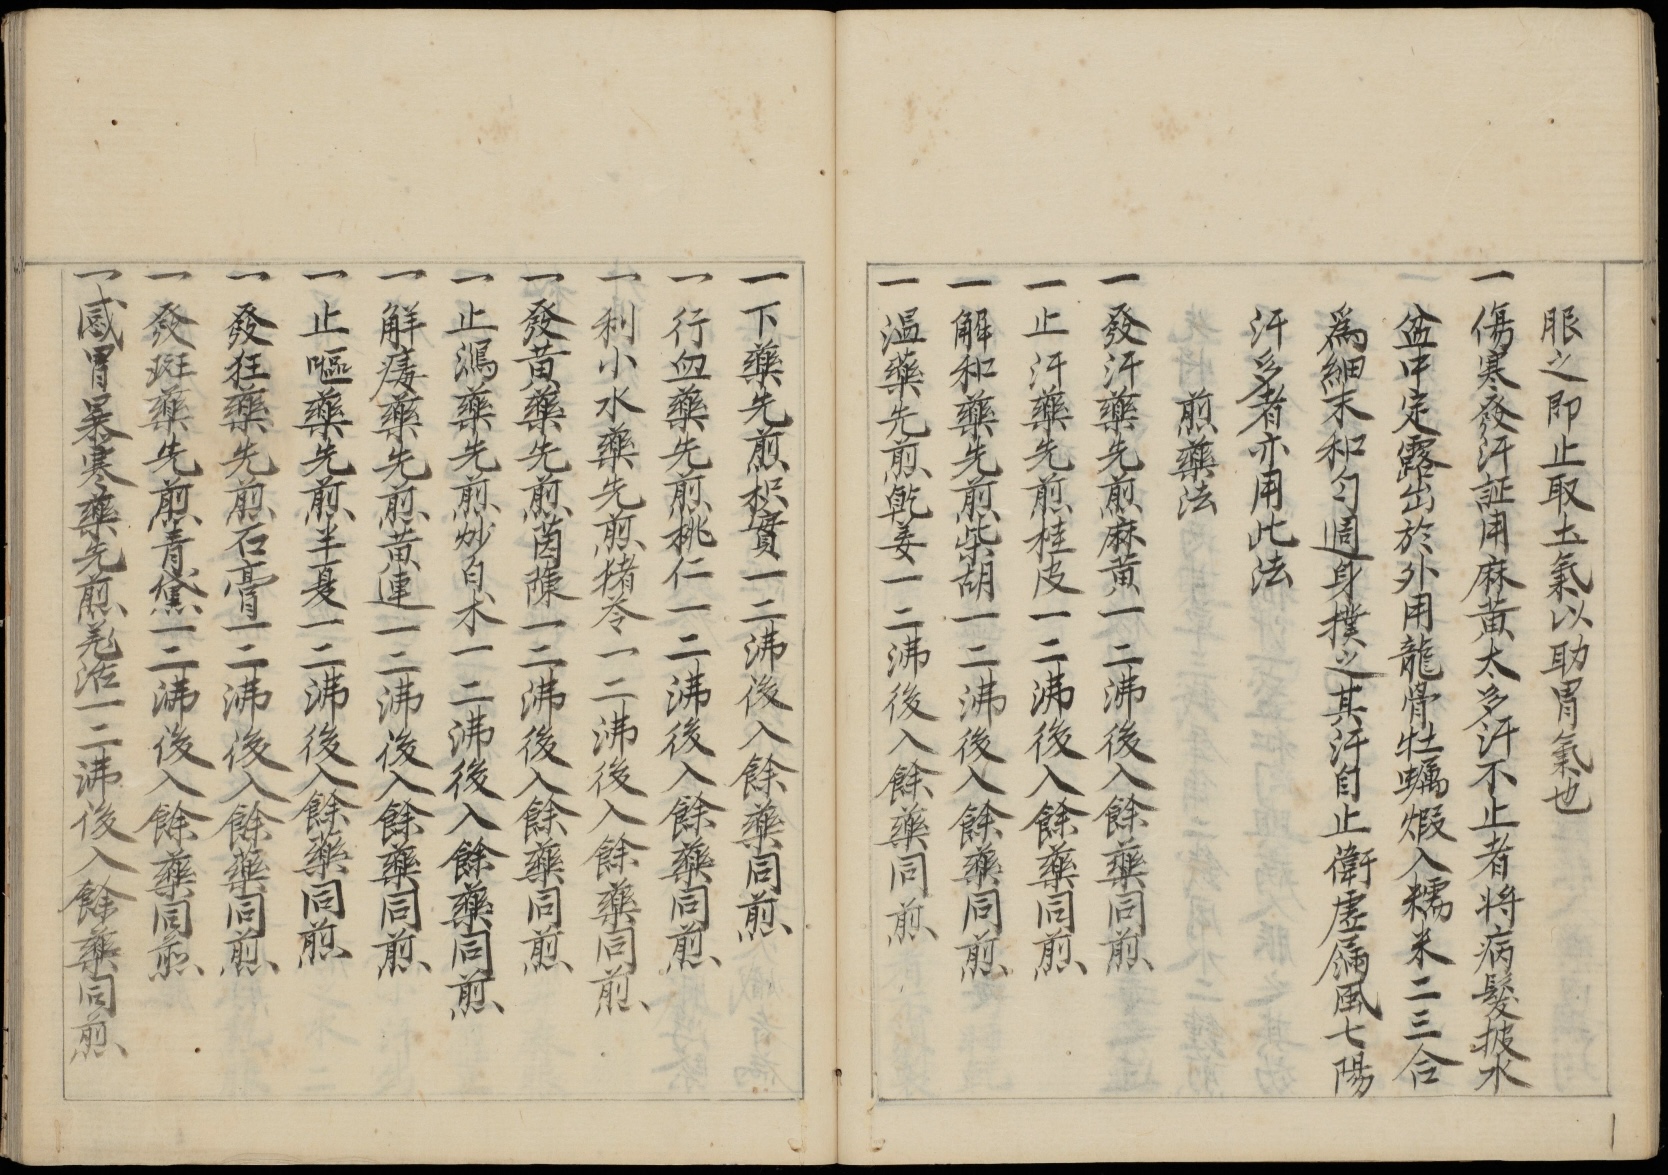 服之即止取土氣以助胃氣也
一傷寒發汗証用麻黄太多汗不止者将病髮披水
盆中定露出於外用龍骨牡蠣煆入糯米二三合
爲細末和匀週身撲之其汗自止衛虚漏風七陽
汗多者亦用此法
煎藥法
一發汗藥先煎麻黄一二沸後入餘藥同煎
一止汗藥先煎桂皮一二沸後入餘藥同煎
一解和藥先煎柴胡一二沸後入餘藥同煎
一温藥先煎乾姜一二沸後入餘藥同煎
一下藥先煎枳實一二沸後入餘藥同煎
一行血藥先煎桃仁一二沸後入餘藥同煎
一利小水藥先煎猪苓一二沸後入餘藥同煎
一發黄藥先煎茵蔯一二沸後入餘藥同煎
一止瀉藥先煎炒白朮一二沸後入餘藥同煎
一解痿藥先煎黄連一二沸後入餘藥同煎
一止嘔藥先煎半夏一二沸後入餘藥同煎
一發狂藥先煎石膏一二沸後入餘藥同煎
一發斑藥先煎青黛一二沸後入餘藥同煎
一感胃暴寒藥先煎羌活一二沸後入餘藥同煎